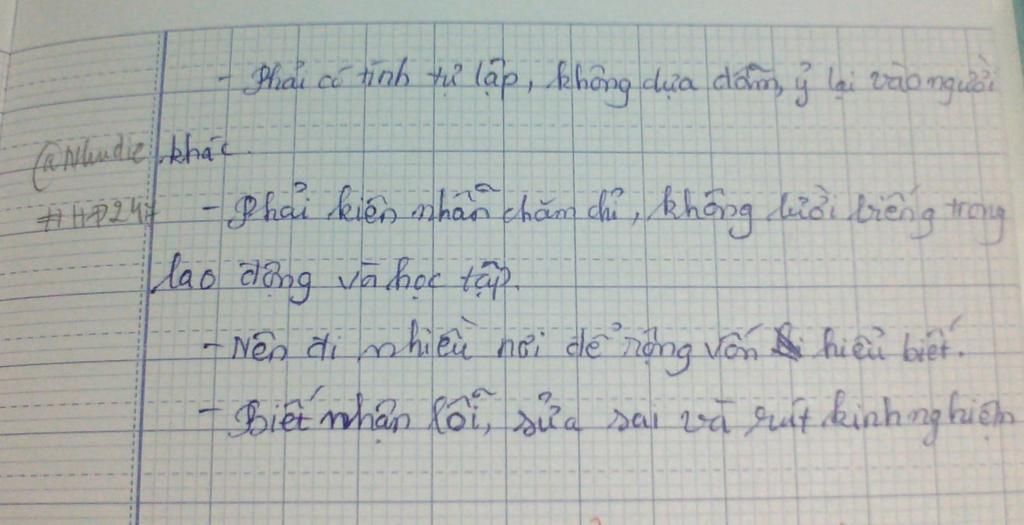 - Phải có tính tự lập, không dựa dẫm, ỷ lại vào người
@Nhudie khác.
#HĐ247 - Phải kiên nhẫn chăm chỉ, không lười biếng trong
lao động và học tập.
- Nên đi nhiều nơi để rộng vốn hiểu biết.
- Biết nhận lỗi, sửa sai và rút kinh nghiệm